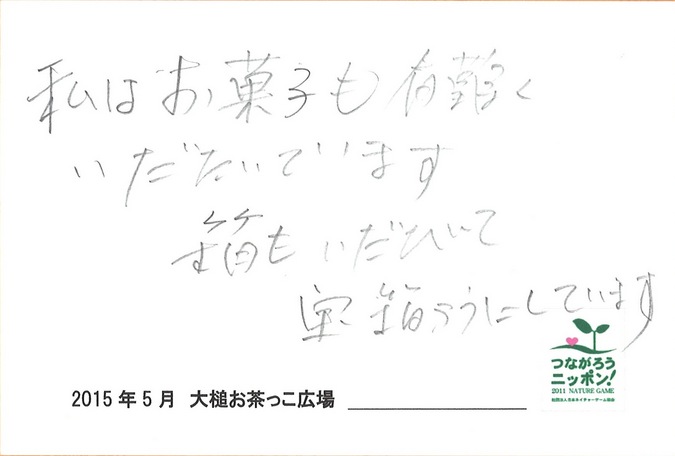 私はお菓子も有難く
いただいています
箱もいただいて
宝箱ようにしています
つながろう
ニッポン!
2011 NATURE GAME
社団法人日本ネイチャーゲーム協会
2015年5月 大槌お茶っこ広場